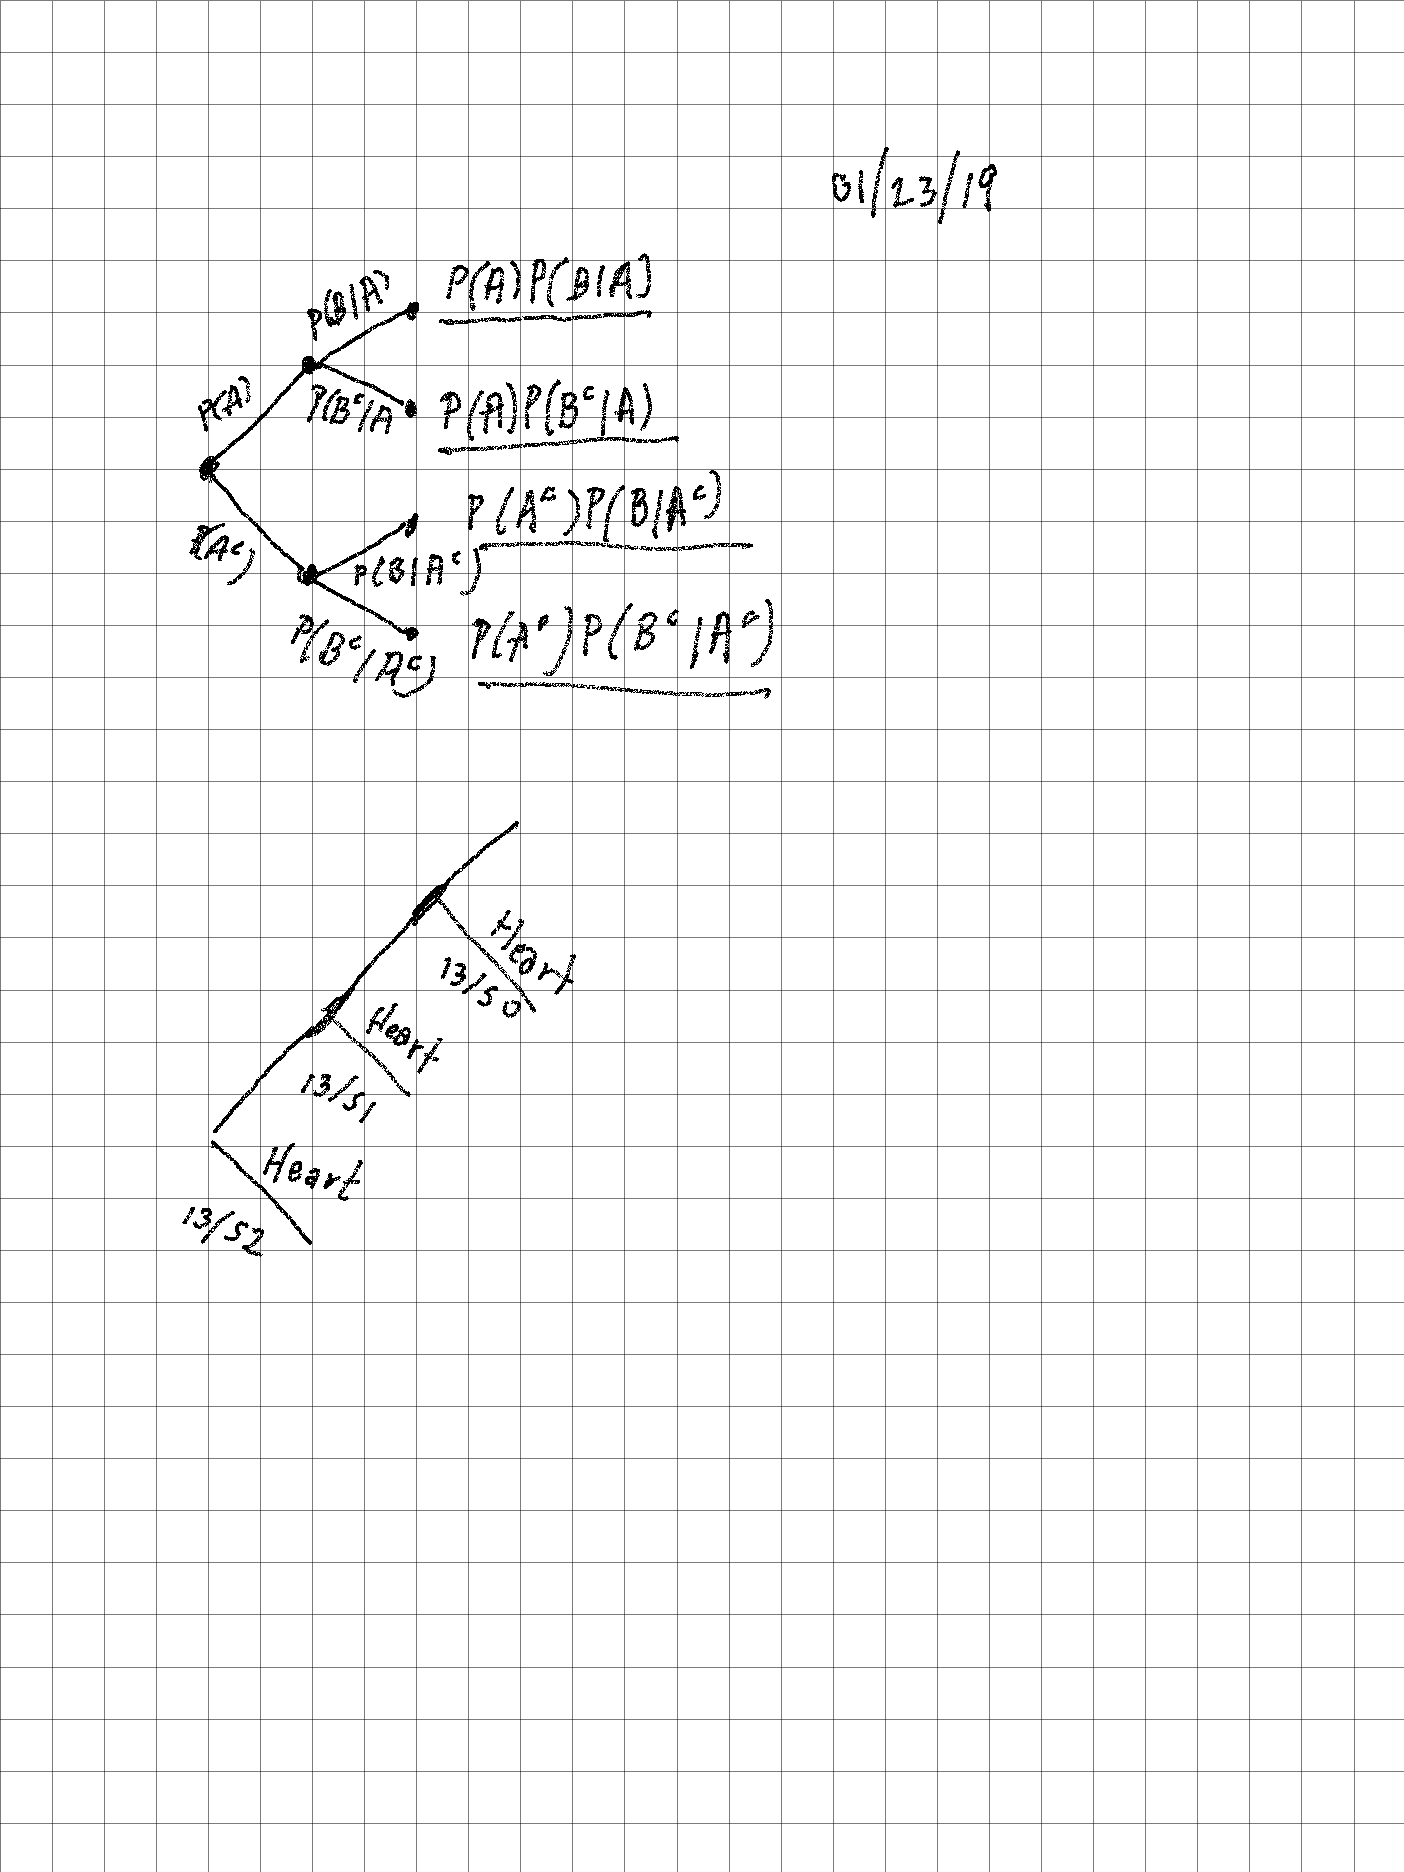 01/23/19
P(B|A)
P(A)P(B|A)
P(A)
P(B^c/A
P(A)P(B^c|A)
P(A^c)
P(B|A^c)
P(A^c)P(B|A^c)
P(B^c/A^c)
P(A^c)P(B^c|A^c)
Heart
13/50
Heart
13/51
Heart
13/52